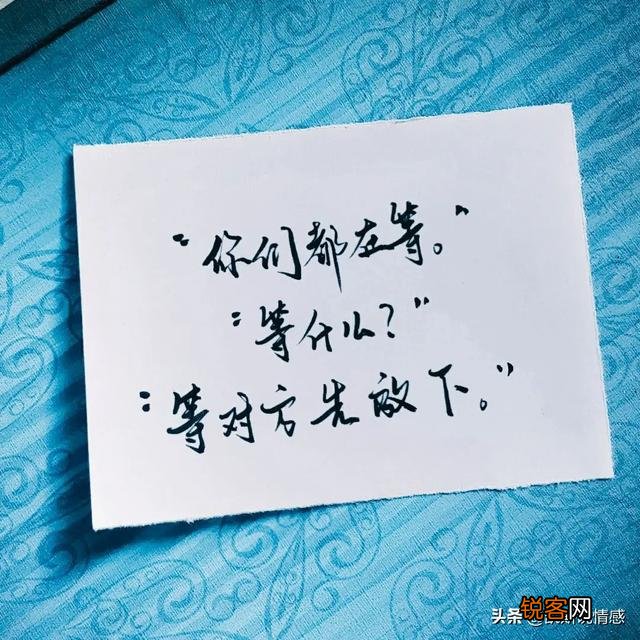 “你们都在等。”
“等什么？”
“等对方先放下。”
锐客网
头条 @
情感